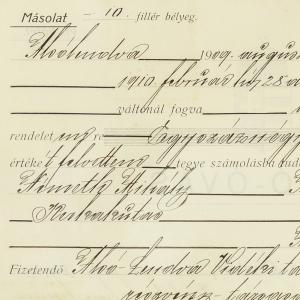 Másolat – 10 – fillér bélyeg.
Alsólendva 1909 augusz
1910 február hó 28 a
váltónál fogva
rendelet re Egyszáznégy
értéke felvettem tegye számolásba tud
Németh Mihály
Kerkakutas
Fizetendő Alsó-Lendva Vidéki ta
részvény-társas